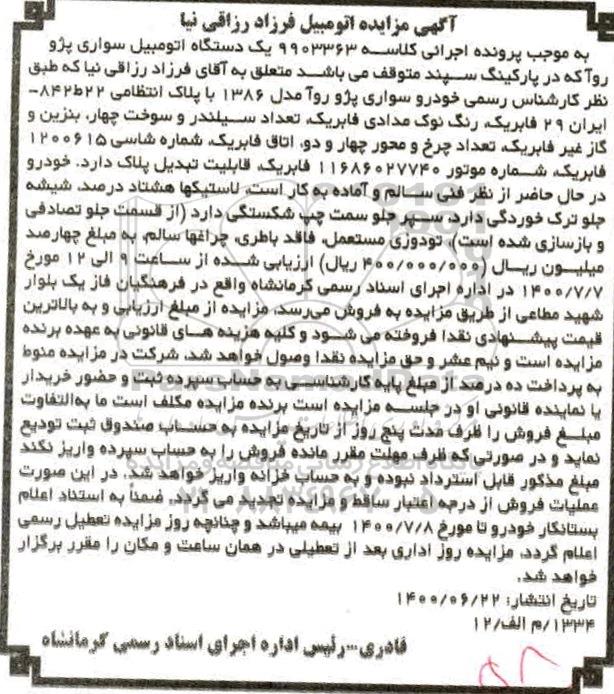 آگهی مزایده اتومبیل فرزاد رزاقی نیا
به موجب پرونده اجرائی کلاسه ۹۹۰۳۳۶۳ یک دستگاه اتومبیل سواری پژو
روآ که در پارکینگ سپند متوقف می باشد متعلق به آقای فرزاد رزاقی نیا که طبق
نظر کارشناس رسمی خودرو سواری پژو روآ مدل ۱۳۸۶ با پلاک انتظامی ۲۲ط۸۴۲-
ایران ۲۹ فابریک، رنگ نوک مدادی فابریک، تعداد سیلندر و سوخت چهار، بنزین و
گاز غیر فابریک، تعداد چرخ و محور چهار و دو، اتاق فابریک، شماره شاسی ۱۲۰۰۶۱۵
فابریک، شماره موتور ۱۱۶۸۶۰۲۷۷۴۰ فابریک، قابلیت تبدیل پلاک دارد. خودرو
در حال حاضر از نظر فنی سالم و آماده به کار است، لاستیکها هشتاد درصد، شیشه
جلو ترک خوردگی دارد، سپر جلو سمت چپ شکستگی دارد (از قسمت جلو تصادفی
و بازسازی شده است)، تودوزی مستعمل، فاقد باطری، چراغها سالم، به مبلغ چهارصد
میلیون ریال (۴۰۰/۰۰۰/۰۰۰ ریال) ارزیابی شده از ساعت ۹ الی ۱۲ مورخ
۱۴۰۰/۷/۷ در اداره اجرای اسناد رسمی کرمانشاه واقع در فرهنگیان فاز یک بلوار
شهید مطاعی از طریق مزایده به فروش می‌رسد، مزایده از مبلغ ارزیابی و به بالاترین
قیمت پیشنهادی نقدا فروخته می شود و کلیه هزینه های قانونی به عهده برنده
مزایده است و نیم عشر و حق مزایده نقدا وصول خواهد شد، شرکت در مزایده منوط
به پرداخت ده درصد از مبلغ پایه کارشناسی به حساب سپرده ثبت و حضور خریدار
یا نماینده قانونی او در جلسه مزایده است برنده مزایده مکلف است ما به‌التفاوت
مبلغ فروش را ظرف مدت پنج روز از تاریخ مزایده به حساب صندوق ثبت تودیع
نماید و در صورتی که ظرف مهلت مقرر مانده فروش را به حساب سپرده واریز نکند
مبلغ مذکور قابل استرداد نبوده و به حساب خزانه واریز خواهد شد. در این صورت
عملیات فروش از درجه اعتبار ساقط و مزایده تجدید می گردد. ضمناً به استناد اعلام
بستانکار خودرو تا مورخ ۱۴۰۰/۷/۸ بیمه میباشد و چنانچه روز مزایده تعطیل رسمی
اعلام گردد، مزایده روز اداری بعد از تعطیلی در همان ساعت و مکان را مقرر برگزار
خواهد شد.
تاریخ انتشار: ۱۴۰۰/۰۶/۲۲
۱۳۳۴/م الف/۱۲
قادری-رئیس اداره اجرای اسناد رسمی کرمانشاه